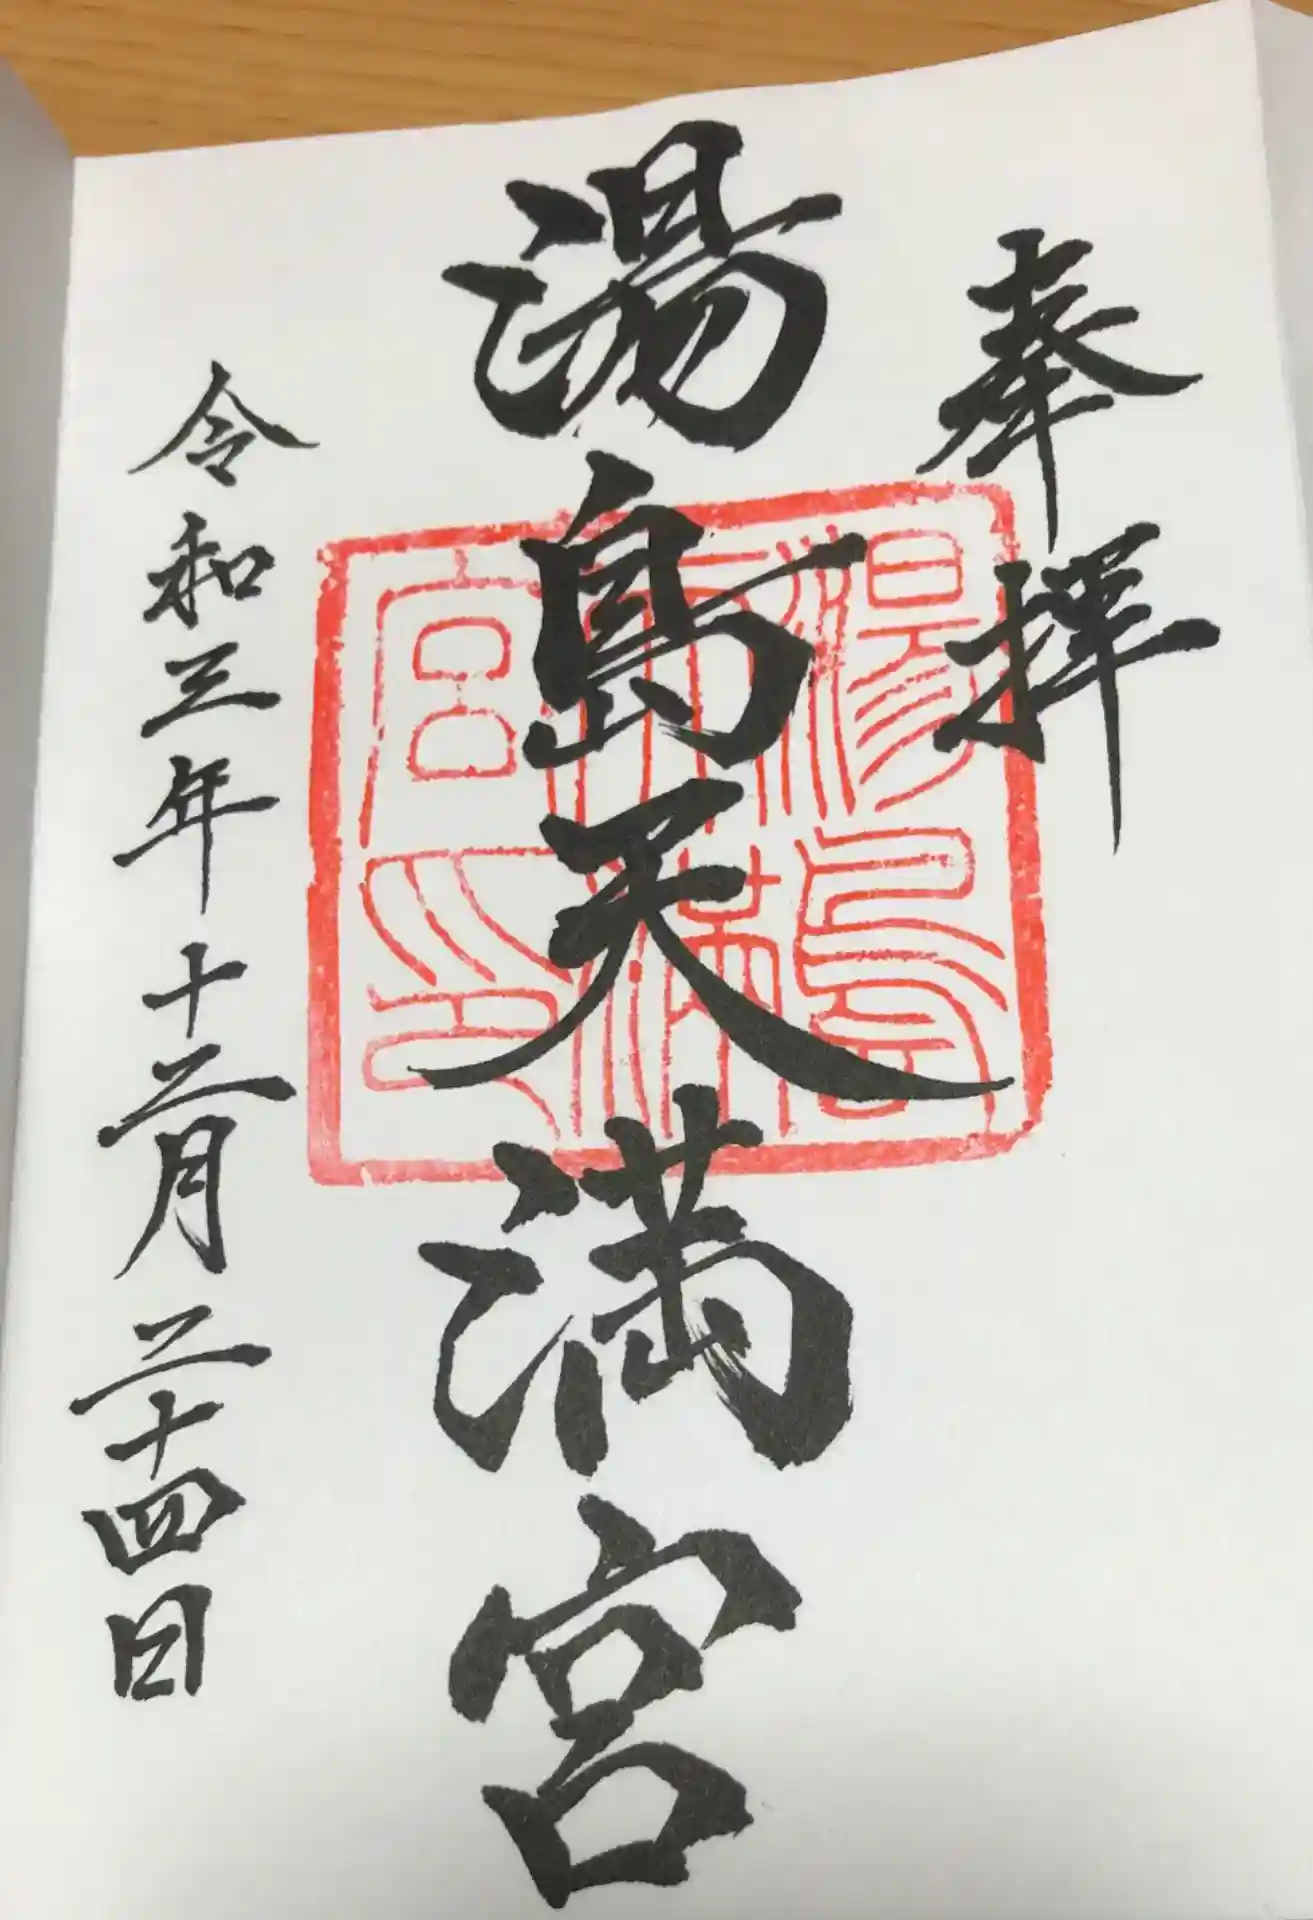 奉拝
湯島天満宮
湯島
天満
宮印
令和三年十二月二十四日